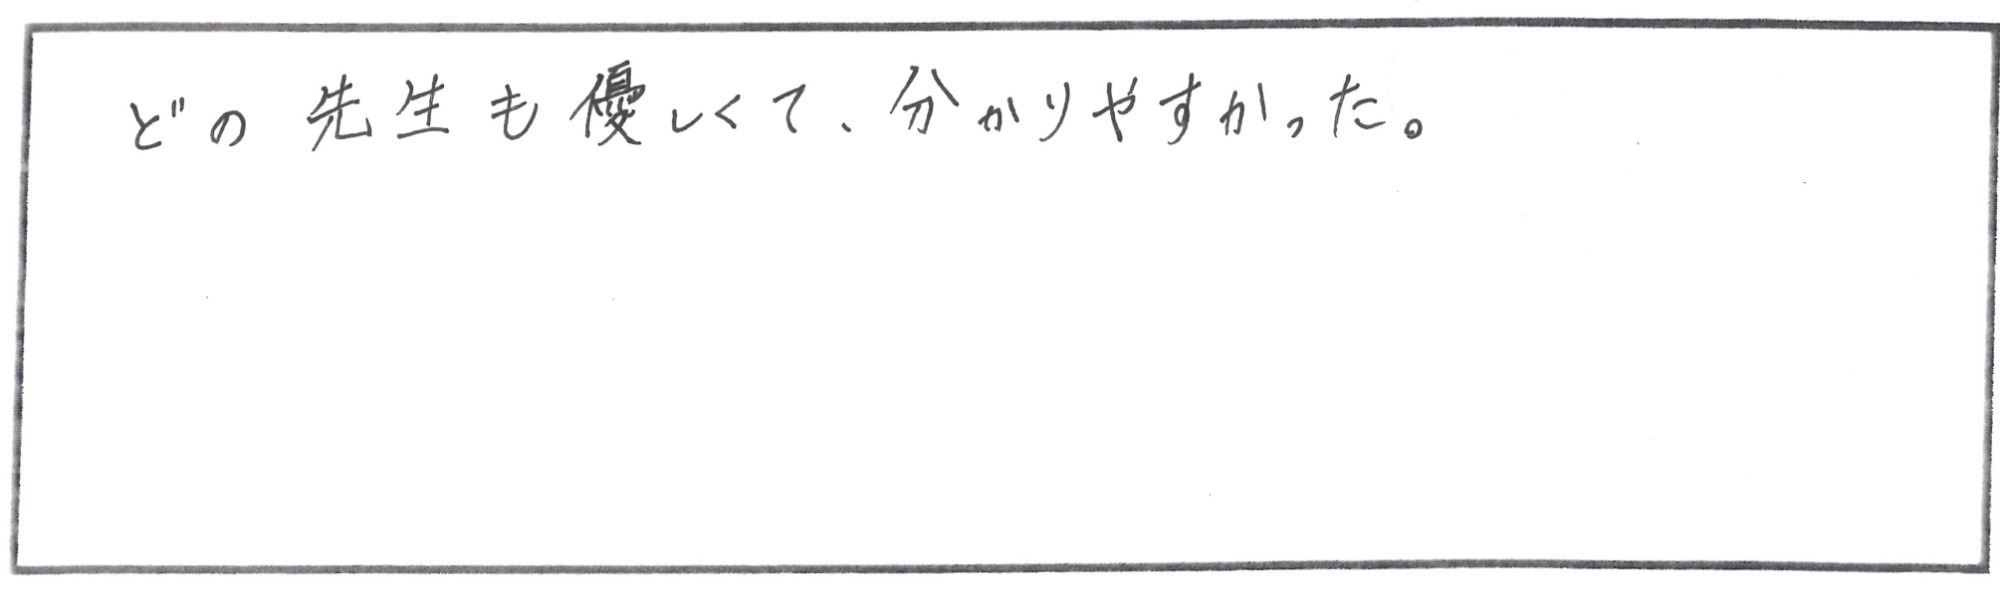 どの先生も優しくて、分かりやすかった。